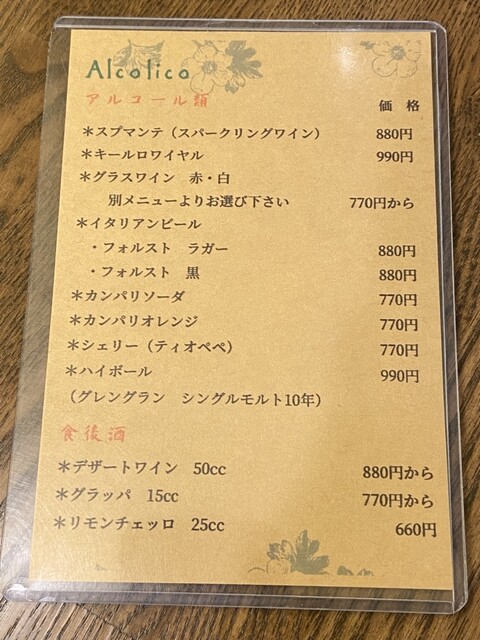 Alcolico
アルコール類
価 格
＊スプマンテ（スパークリングワイン） 880円
＊キールロワイヤル 990円
＊グラスワイン 赤・白
別メニューよりお選び下さい 770円から
＊イタリアンビール
・フォルスト ラガー 880円
・フォルスト 黒 880円
＊カンパリソーダ 770円
＊カンパリオレンジ 770円
＊シェリー（ティオペペ） 770円
＊ハイボール 990円
（グレングラン シングルモルト10年）
食後酒
＊デザートワイン 50cc 880円から
＊グラッパ 15cc 770円から
＊リモンチェッロ 25cc 660円